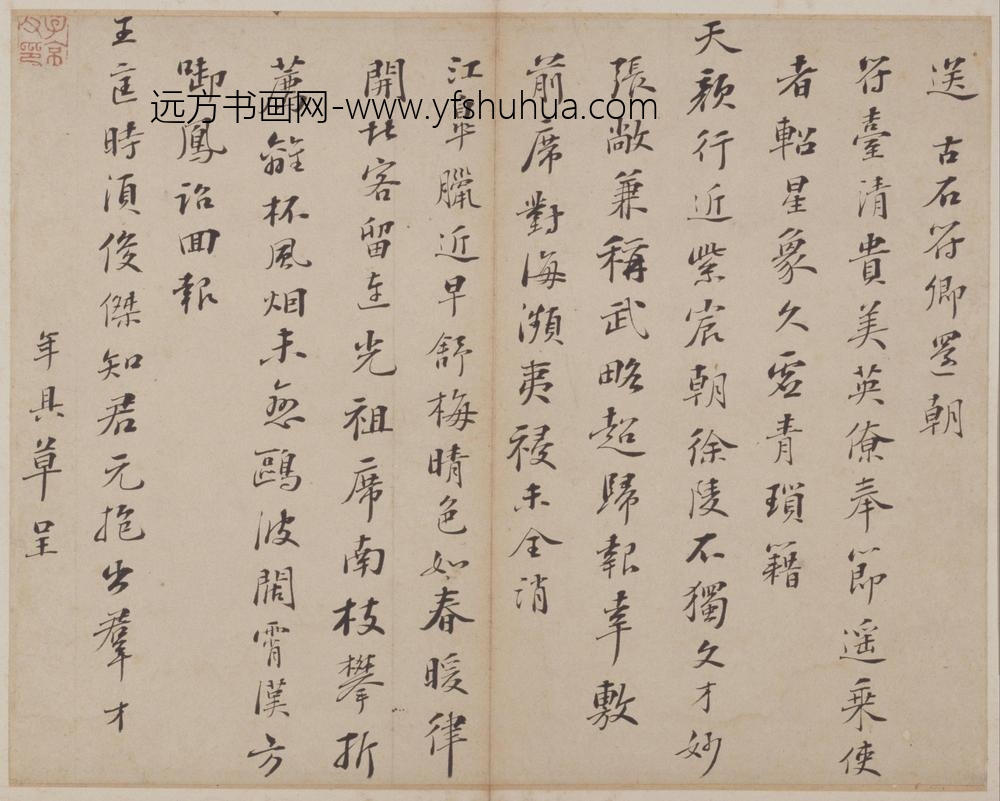 送 古石符卿還朝
符臺清貴美英僚奉節遥乘使
者軺星象久虚青瑣籍
天顏行近紫宸朝徐陵不獨文才妙
張敞兼稱武略超歸報幸敷
前席對海瀕夷祲未全消
江皐臘近早舒梅晴色如春暖律
開北客留連光祖席南枝攀折
薦離杯風烟未忽鷗波闊霄漢方
啣鳳詔回報
王匡時須俊傑知君元抱出羣才
年具草呈
远方书画网-www.yfshuhua.com